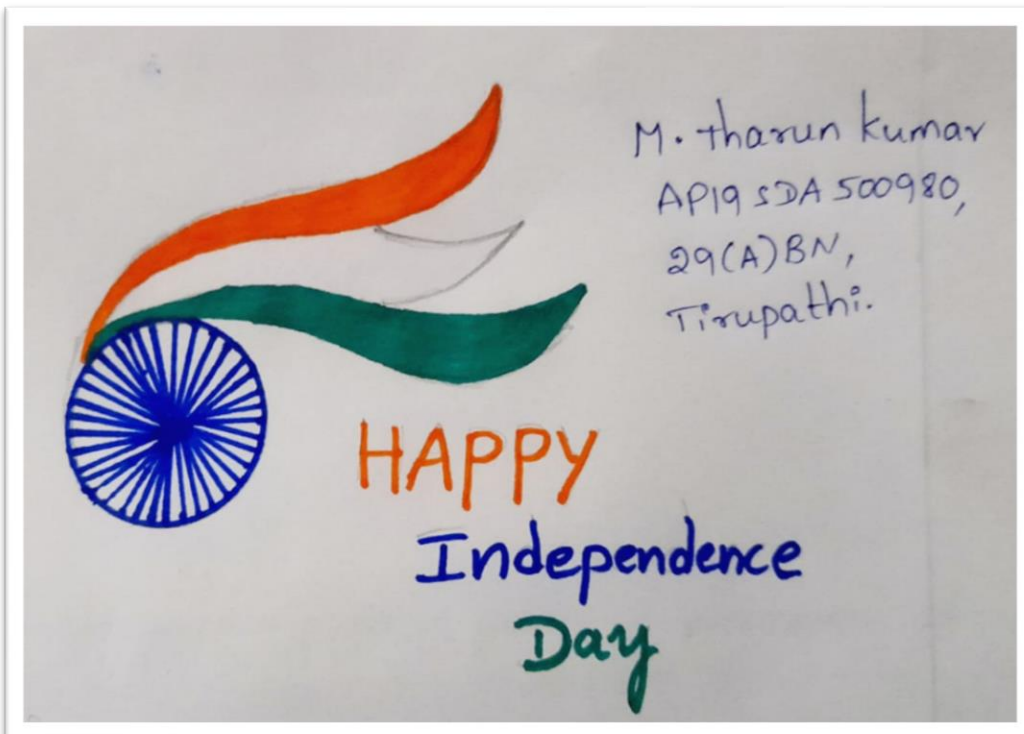 M. tharun kumar
AP19SDA500980,
29(A)BN,
Tirupathi.
HAPPY
Independence
Day